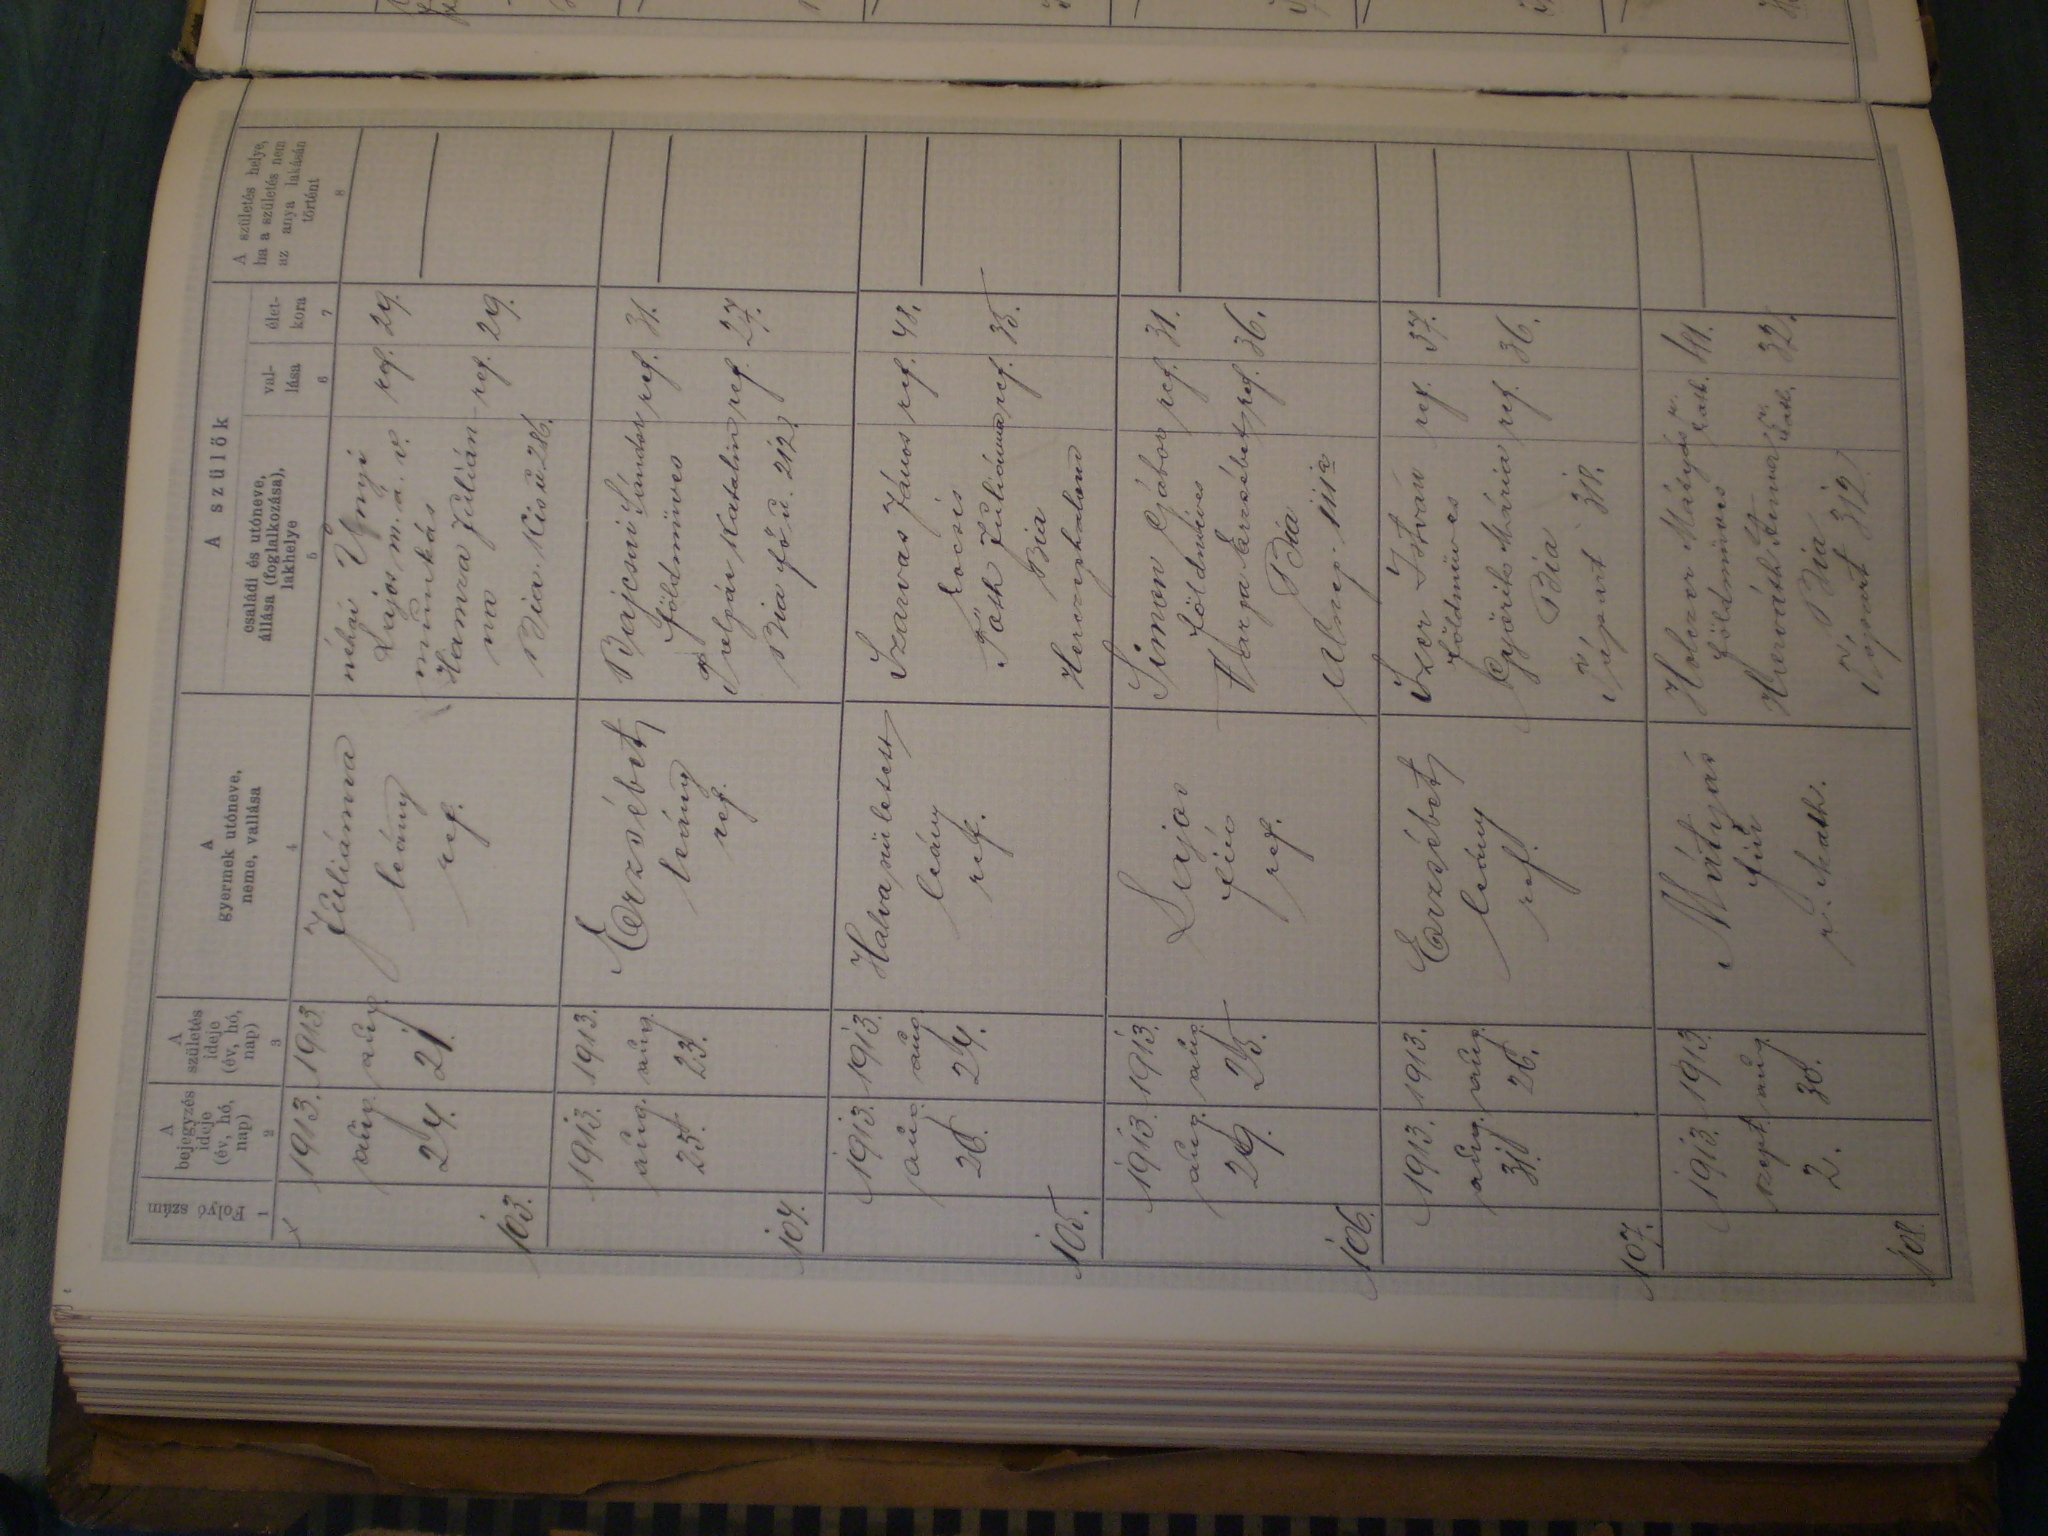 Folyó szám
1
A
bejegyzés
ideje
(év, hó,
nap)
2
A
születés
ideje
(év, hó,
nap)
3
A
gyermek utóneve,
neme, vallása
4
A szülők
családi és utóneve,
állása (foglalkozása),
lakhelye
5
val-
lása
6
élet-
kora
7
A születés helye,
ha a születés nem
az anya lakásán
történt
8
103.
1913.
aug.
24.
1913.
aug.
21.
Juliánna
leány
ref.
néhai
Lajos m. á. v.
munkás
Hamza Julián-
na
Bia. Kis u 286.
ref. 29.
ref. 29.
104.
1913.
aug.
25.
1913.
aug.
23.
Erzsébet
leány
ref.
Bajcsai Sándor
földműves
Katalin
Bia fő u. 212.
ref. 31.
ref. 27.
105.
1913.
aug.
26.
1913.
aug.
24.
Halva született
leány
ref.
Szarvas János
kocsis
Tóth Juliánna
Bia
Herczeghalom
ref. 48.
ref. 35.
106.
1913.
aug.
29.
1913.
aug.
25.
Lajos
fiú
ref.
Simon Gábor
földműves
Varga Erzsébet
Bia
ref. 31.
ref. 36.
107.
1913.
aug.
31.
1913.
aug.
26.
Erzsébet
leány
ref.
István
földműves
Mária
Bia
318.
ref. 37.
ref. 36.
108.
1913.
szept.
2.
1913.
aug.
30.
Mátyás
fiú
r. kath.
Mátyás
földműves
Horváth
Bia
312.
r. kath. 41.
r. kath. 32.